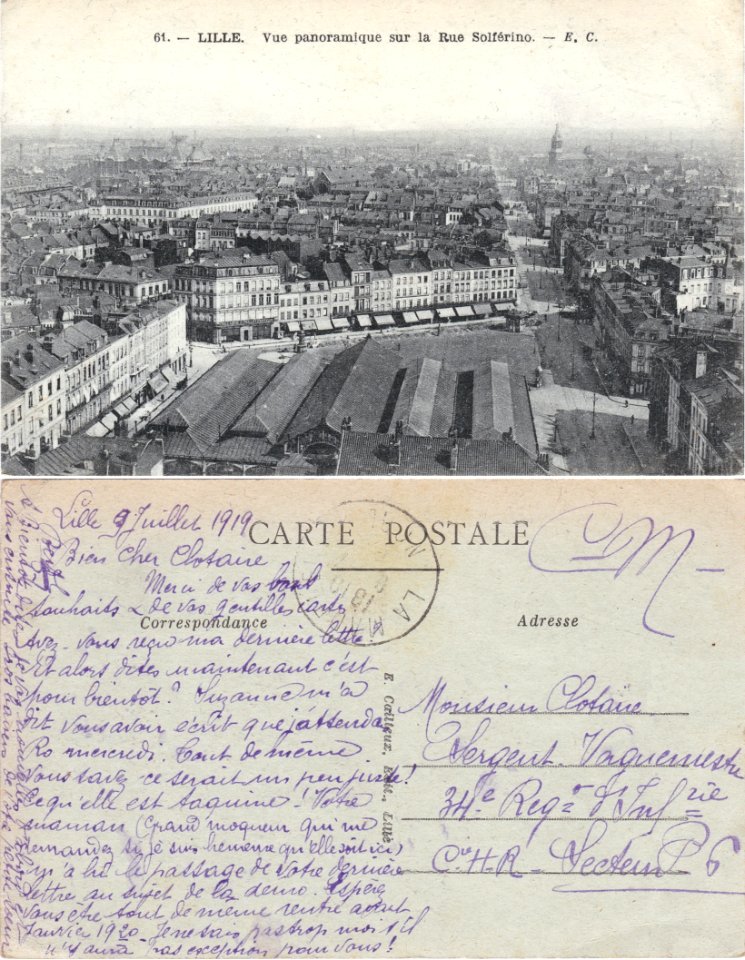 61. — LILLE. Vue panoramique sur la Rue Solférino. — E. C.
CARTE POSTALE
Correspondance
Adresse
E. Cailteux, Edit., Lille
Lille 9 Juillet 1919
Bien Cher Clotaire
Merci de vos bons
souhaits & de vos gentilles cartes
Avez-vous reçu ma dernière lettre
Et alors dites maintenant c'est
pour bientôt? Suzanne m'a
dit vous avoir écrit que j'attendais
Ro mercredi. Tout de même
Vous savez ce serait un peu juste!
Ce qu'elle est taquine! Votre
maman (Grand moqueur qui me
demandez si je suis heureuse qu'elle soit ici)
m'a lu le passage de votre dernière
lettre au sujet de la démo. Espère
vous être tout de même rentré avant
Janvier 1920. Je ne sais pas trop moi s'il
n'y aura pas exception pour vous!
à bientôt
CM
Monsieur Clotaire
Sergent Vaguemestre
34e Regt d'Infrie
Cie H.R. Secteur P 6
LA